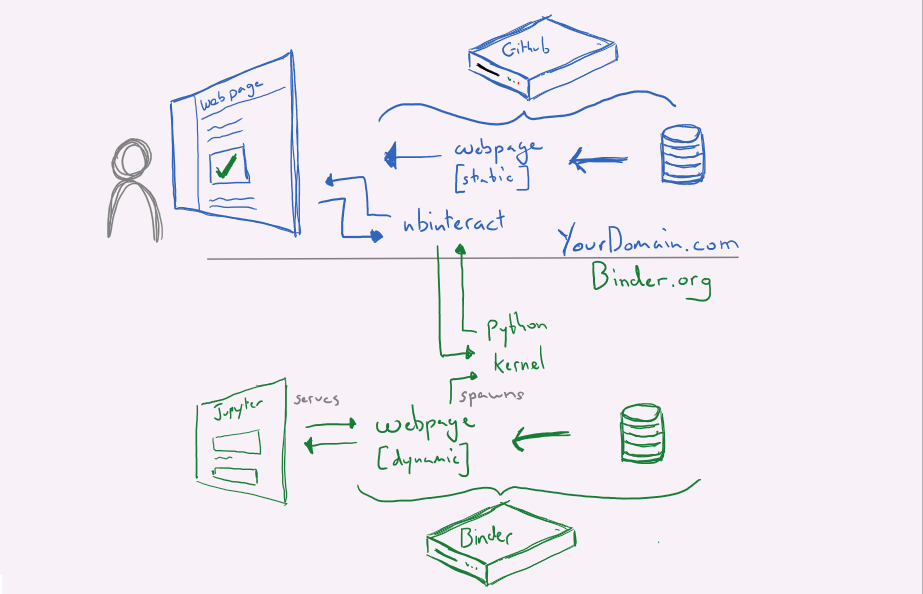 Github
Web page
webpage
[static]
nbinteract
YourDomain.com
Binder.org
python
kernel
spawns
Jupyter
serves
webpage
[dynamic]
Binder